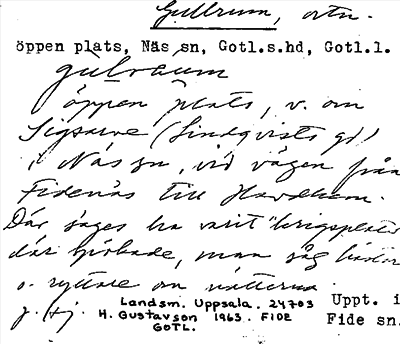 Gullrum, ortn.
öppen plats, Näs sn, Gotl.s.hd, Gotl.l.
gulraum
öppen plats, v. om
Sigsarve (Lindqvists gd)
i Näs sn, vid vägen från
Fidenäs till Havdhem.
Där sages ha varit "krigsplats
där spökade, man såg hästar
o. ryttare om nätterna
Landsm. Uppsala. 24703
H. Gustavson 1963. FIDE
GOTL.
Uppt. i
Fide sn.